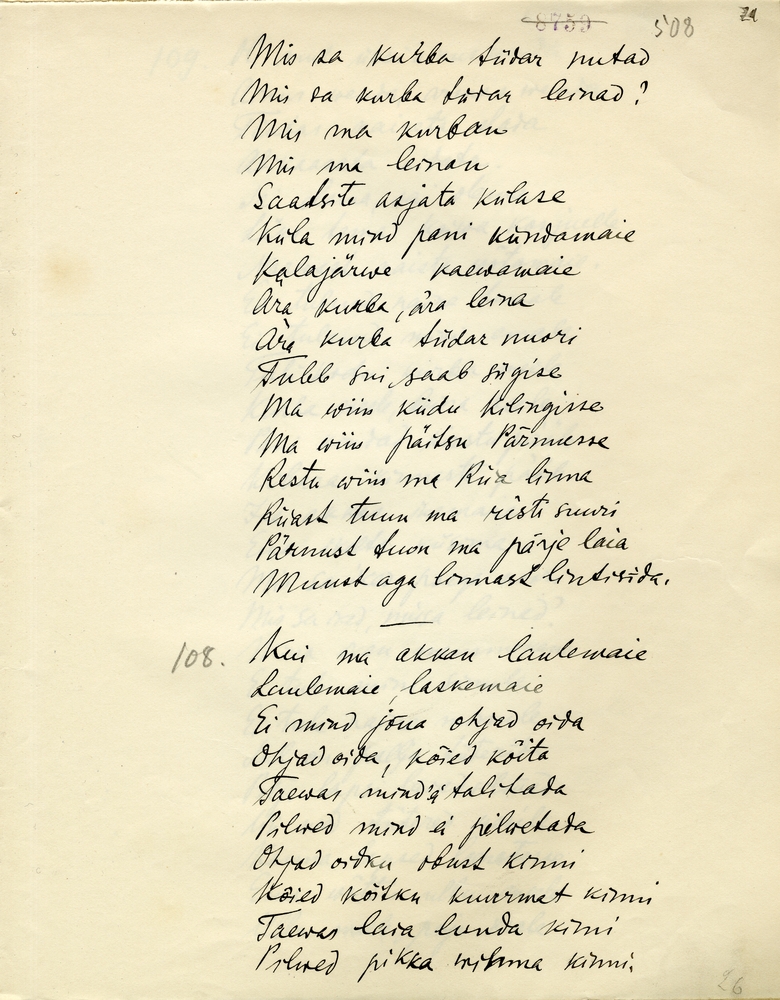 8759 508 21
Mis sa kurba tüdar nutad
Mis sa kurba tüdar leinad?
Mis ma kurban
Mis ma leinan
Saadsite asjata külase
Küla mind pani kündamaie
Kalajärwe kaewamaie
Ära kurba, ära leina
Ära kurba tüdar nuori
Tuleb sui, saab sügise
Ma wiin küdu Kilingisse
Ma wiin päitsu Pärnusse
Restu wiin ma Riia linna
Riiast tuun ma risti suuri
Pärnust tuon ma pärje laia
Muust aga linnast lintisida.
108. Kui ma akkan laulemaie
Laulemaie, laskemaie
Ei mind jõua ohjad oida
Ohjad oida, kõied kõita
Taewas mind ei talitada
Pilwed mind ei pilwetada
Ohjad oidku obust kinni
Kõied kõitku kuurmat kinni
Taewas laia lunda kinni
Pilwed pikka wihma kinni.
26